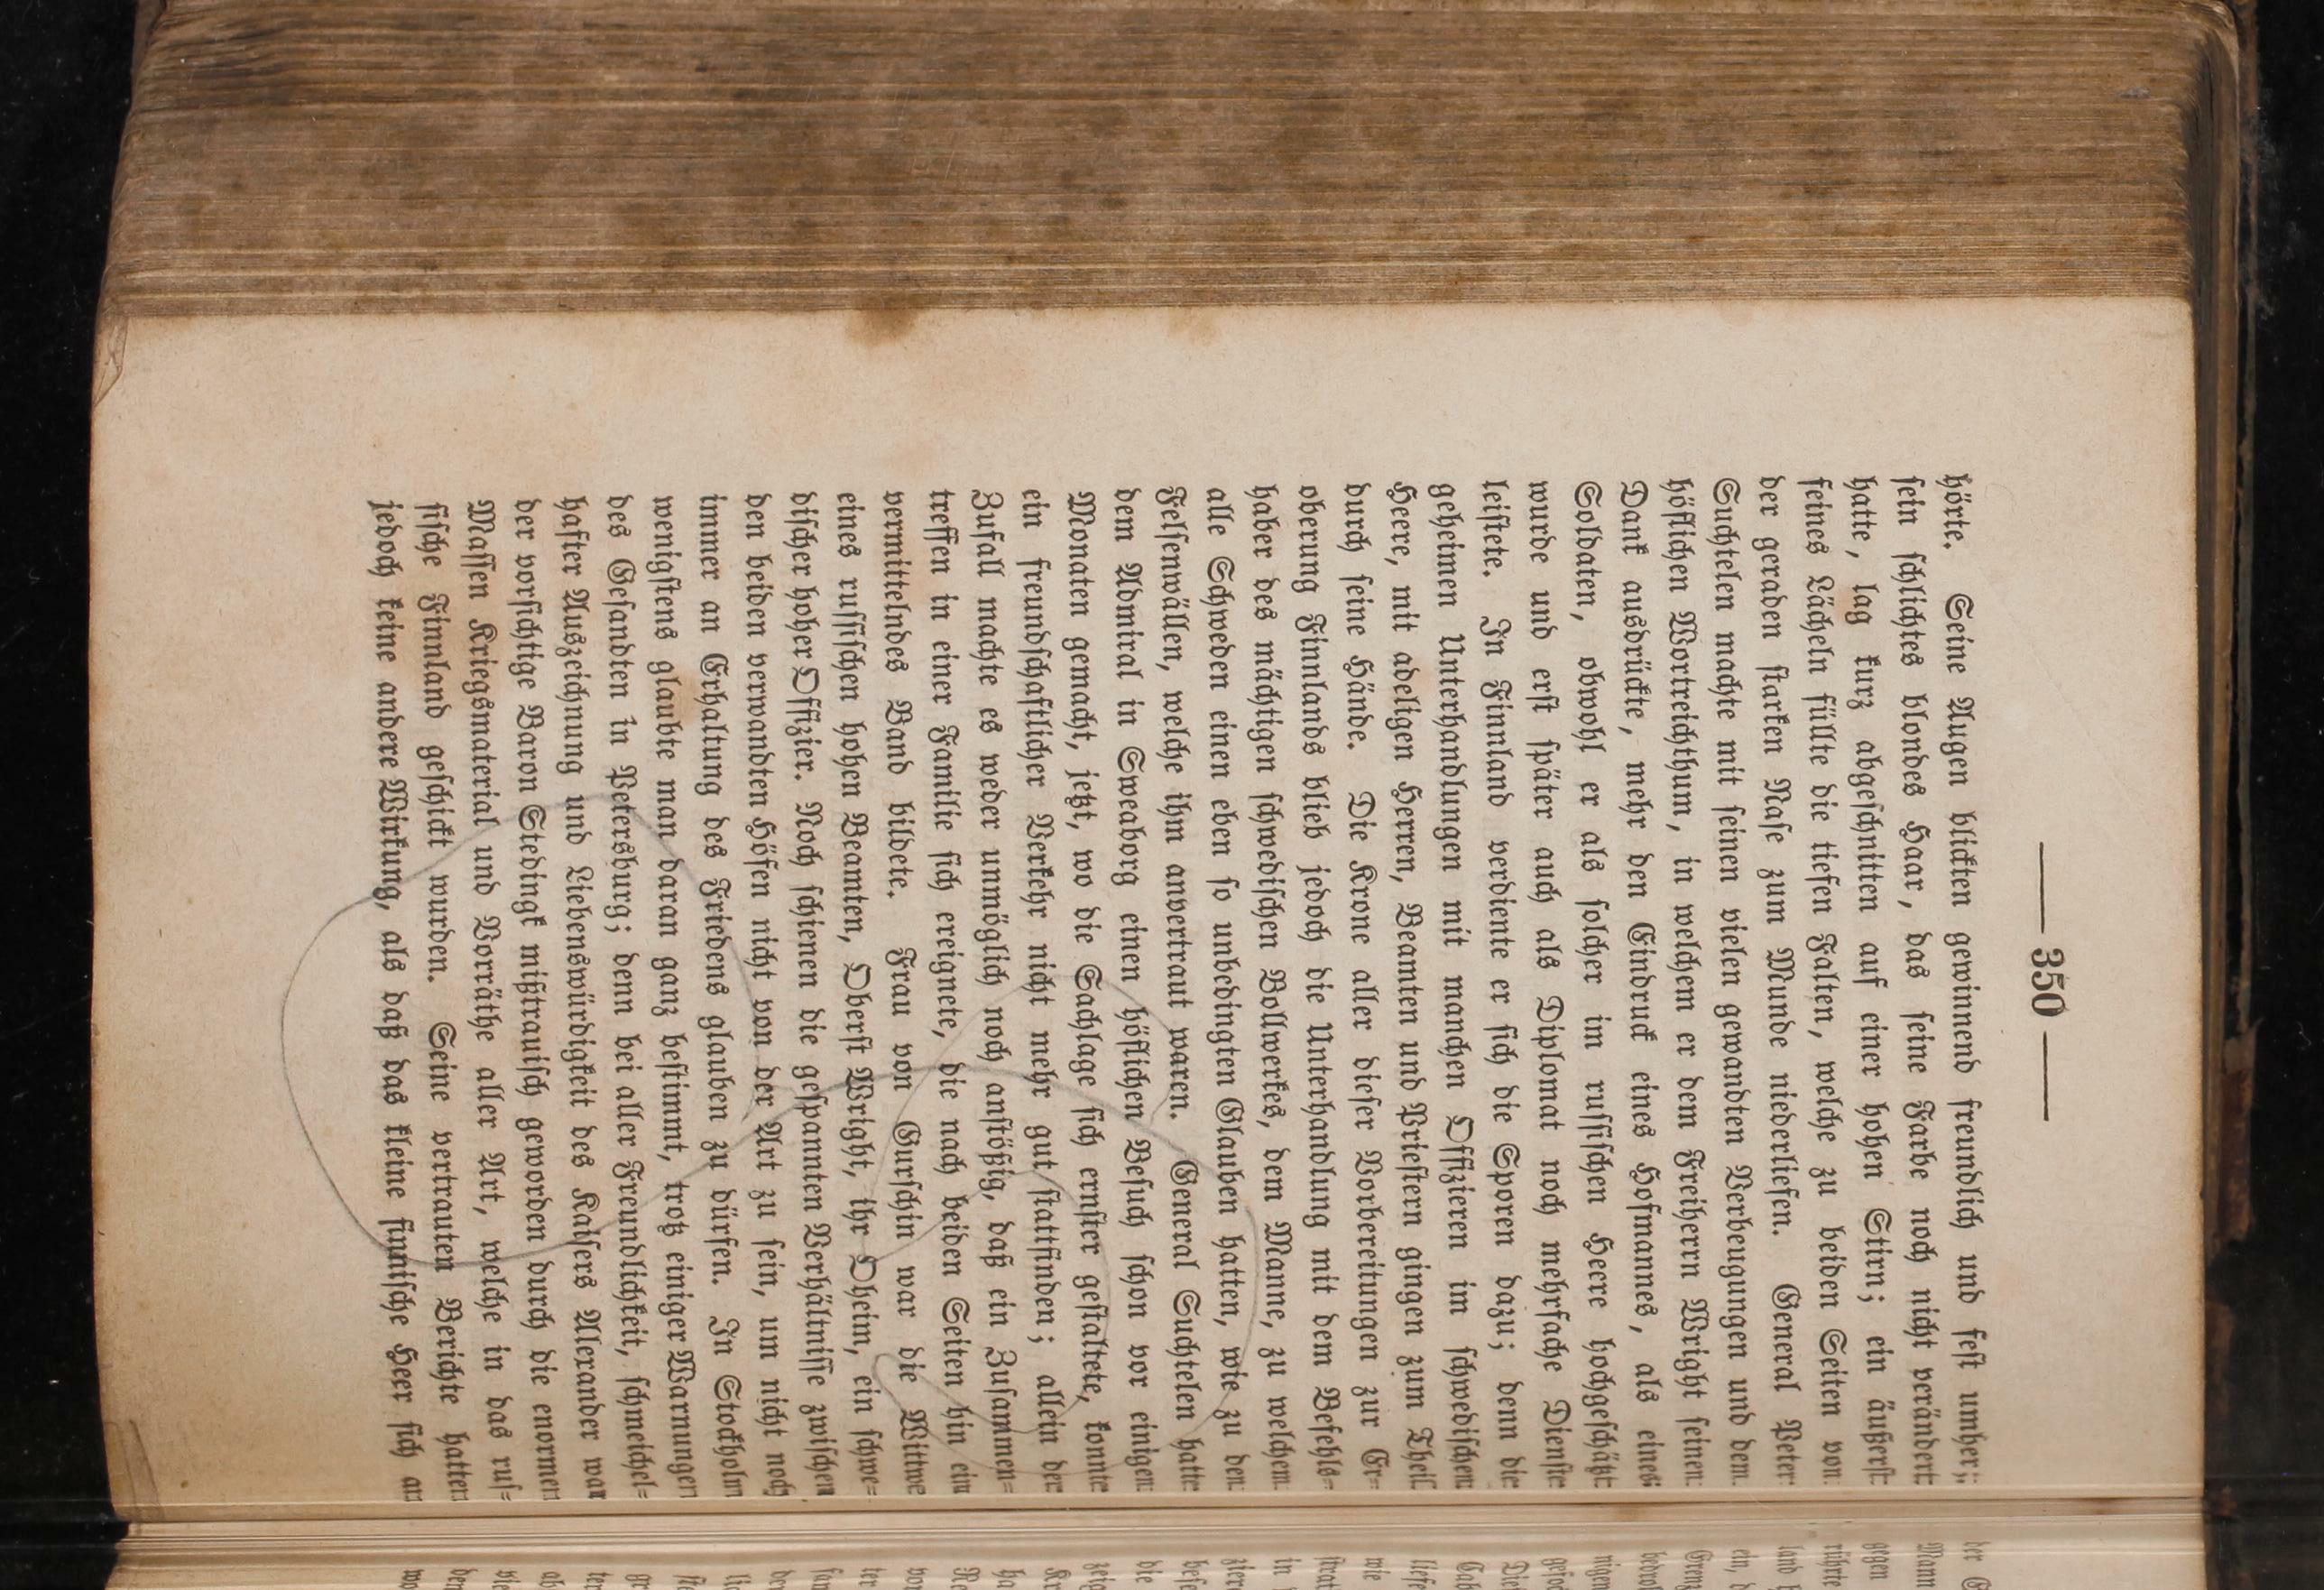 — 350 —
hörte. Seine Augen blickten gewinnend freundlich und fest umher;
sein schlichtes blondes Haar, das seine Farbe noch nicht verändert
hatte, lag kurz abgeschnitten auf einer hohen Stirn; ein äußerst
feines Lächeln füllte die tiefen Falten, welche zu beiden Seiten von
der geraden starken Nase zum Munde niederliefen. General Peter
Suchtelen machte mit seinen vielen gewandten Verbeugungen und dem
höflichen Wortreichthum, in welchem er dem Freiherrn Wright seinen
Dank ausdrückte, mehr den Eindruck eines Hofmannes, als eines
Soldaten, obwohl er als solcher im russischen Heere hochgeschätzt
wurde und erst später auch als Diplomat noch mehrfache Dienste
leistete. In Finnland verdiente er sich die Sporen dazu; denn die
geheimen Unterhandlungen mit manchen Offizieren im schwedischen
Heere, mit adeligen Herren, Beamten und Priestern gingen zum Theil
durch seine Hände. Die Krone aller dieser Vorbereitungen zur Er-
oberung Finnlands blieb jedoch die Unterhandlung mit dem Befehls-
haber des mächtigen schwedischen Bollwerkes, dem Manne, zu welchem
alle Schweden einen eben so unbedingten Glauben hatten, wie zu den
Felsenwällen, welche ihm anvertraut waren. General Suchtelen hatte
dem Admiral in Sweaborg einen höflichen Besuch schon vor einigen
Monaten gemacht, jetzt, wo die Sachlage sich ernster gestaltete, konnte
ein freundschaftlicher Verkehr nicht mehr gut stattfinden; allein der
Zufall machte es weder unmöglich noch anstößig, daß ein Zusammen-
treffen in einer Familie sich ereignete, die nach beiden Seiten hin ein
vermittelndes Band bildete. Frau von Gurschin war die Witwe
eines russischen hohen Beamten, Oberst Wright, ihr Oheim, ein schwe-
discher hoher Offizier. Noch schienen die gespannten Verhältnisse zwischen
den beiden verwandten Höfen nicht von der Art zu sein, um nicht noch
immer an Erhaltung des Friedens glauben zu dürfen. In Stockholm
wenigstens glaubte man daran ganz bestimmt, trotz einiger Warnungen
des Gesandten in Petersburg; denn bei aller Freundlichkeit, schmeichel-
hafter Auszeichnung und Liebenswürdigkeit des Kaisers Alexander war
der vorsichtige Baron Stedingk mißtrauisch geworden durch die enormen
Massen Kriegsmaterial und Vorräthe aller Art, welche in das rus-
sische Finnland geschickt wurden. Seine vertrauten Berichte hatten
jedoch keine andere Wirkung, als daß das kleine finnische Heer sich an